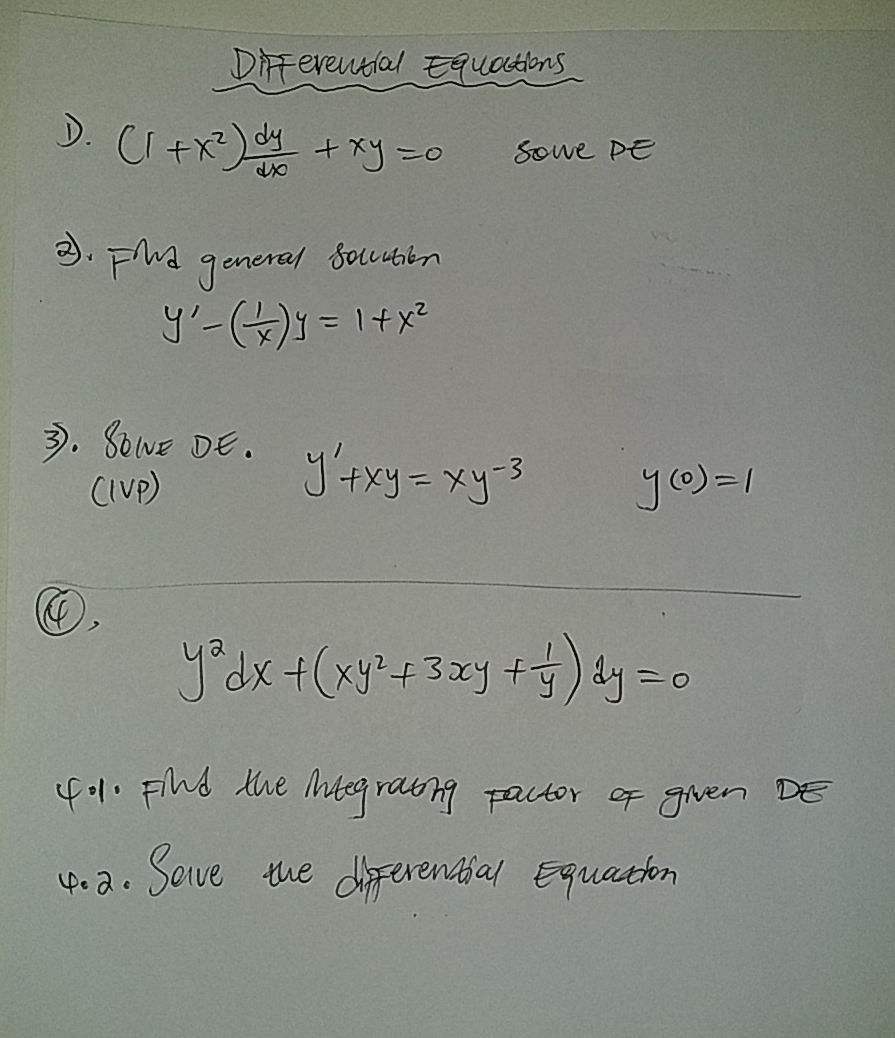 Differential Equations
1). (1+x²) dy/dx + xy = 0 solve DE
2). Find general solution
y' - (1/x)y = 1+x²
3). Solve DE. y' + xy = xy⁻³ y(0)=1
(IVP)
④,
y²dx + (xy² + 3xy + 1/y) dy = 0
4.1. Find the Integrating Factor of given DE
4.2. Solve the differential Equation